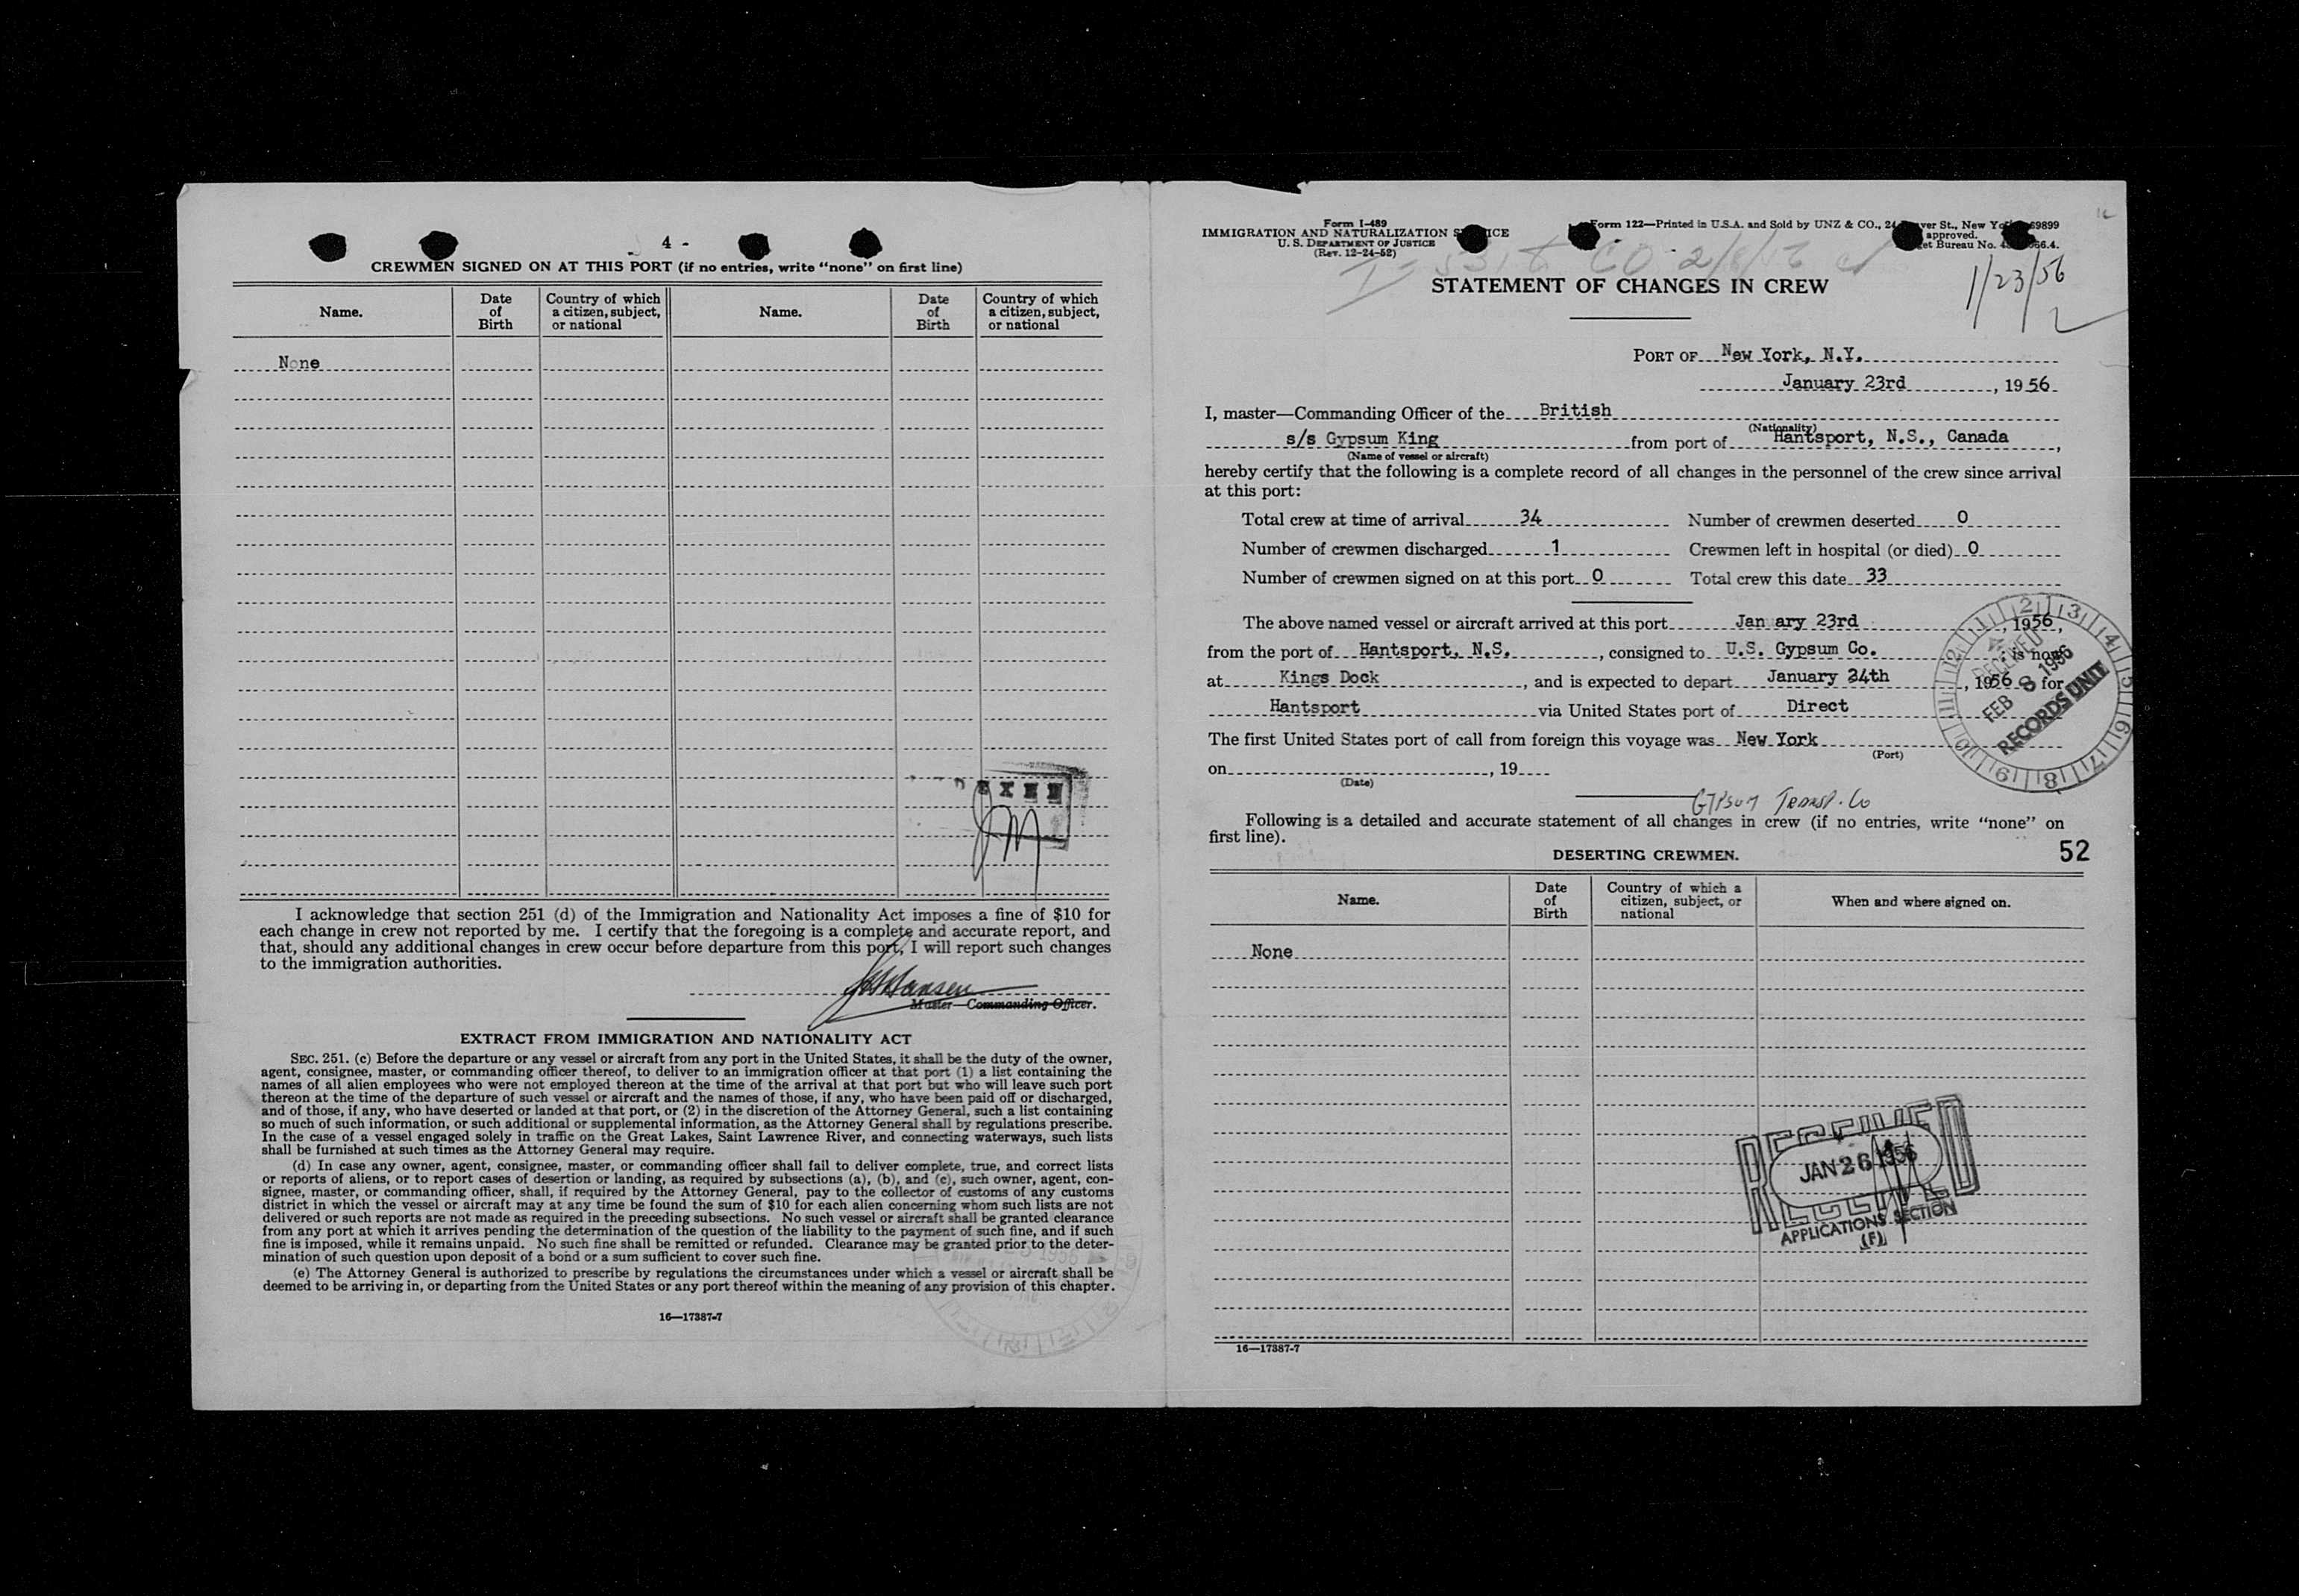 4 -
CREWMEN SIGNED ON AT THIS PORT (if no entries, write "none" on first line)
Name.
Date of Birth
Country of which a citizen, subject, or national
Name.
Date of Birth
Country of which a citizen, subject, or national
None
I acknowledge that section 251 (d) of the Immigration and Nationality Act imposes a fine of $10 for
each change in crew not reported by me. I certify that the foregoing is a complete and accurate report, and
that, should any additional changes in crew occur before departure from this port, I will report such changes
to the immigration authorities.
Hansen
Master—Commanding Officer.
EXTRACT FROM IMMIGRATION AND NATIONALITY ACT
SEC. 251. (c) Before the departure or any vessel or aircraft from any port in the United States, it shall be the duty of the owner,
agent, consignee, master, or commanding officer thereof, to deliver to an immigration officer at that port (1) a list containing the
names of all alien employees who were not employed thereon at the time of the arrival at that port but who will leave such port
thereon at the time of the departure of such vessel or aircraft and the names of those, if any, who have been paid off or discharged,
and of those, if any, who have deserted or landed at that port, or (2) in the discretion of the Attorney General, such a list containing
so much of such information, or such additional or supplemental information, as the Attorney General shall by regulations prescribe.
In the case of a vessel engaged solely in traffic on the Great Lakes, Saint Lawrence River, and connecting waterways, such lists
shall be furnished at such times as the Attorney General may require.
(d) In case any owner, agent, consignee, master, or commanding officer shall fail to deliver complete, true, and correct lists
or reports of aliens, or to report cases of desertion or landing, as required by subsections (a), (b), and (c), such owner, agent, con-
signee, master, or commanding officer, shall, if required by the Attorney General, pay to the collector of customs of any customs
district in which the vessel or aircraft may at any time be found the sum of $10 for each alien concerning whom such lists are not
delivered or such reports are not made as required in the preceding subsections. No such vessel or aircraft shall be granted clearance
from any port at which it arrives pending the determination of the question of the liability to the payment of such fine, and if such
fine is imposed, while it remains unpaid. No such fine shall be remitted or refunded. Clearance may be granted prior to the deter-
mination of such question upon deposit of a bond or a sum sufficient to cover such fine.
(e) The Attorney General is authorized to prescribe by regulations the circumstances under which a vessel or aircraft shall be
deemed to be arriving in, or departing from the United States or any port thereof within the meaning of any provision of this chapter.
16—17387-7
Form I-489
IMMIGRATION AND NATURALIZATION
U. S. DEPARTMENT OF JUSTICE
(Rev. 12-24-52)
Form 122—Printed in U.S.A. and Sold by UNZ & CO., 24 St., New
approved.
Bureau No.
1/23/56
STATEMENT OF CHANGES IN CREW
PORT OF New York, N.Y.
January 23rd, 1956
I, master—Commanding Officer of the British
(Nationality)
s/s Gypsum King from port of Hantsport, N.S., Canada,
(Name of vessel or aircraft)
hereby certify that the following is a complete record of all changes in the personnel of the crew since arrival
at this port:
Total crew at time of arrival 34 Number of crewmen deserted 0
Number of crewmen discharged 1 Crewmen left in hospital (or died) 0
Number of crewmen signed on at this port 0 Total crew this date 33
The above named vessel or aircraft arrived at this port Jan ary 23rd, 1956,
from the port of Hantsport, N.S., consigned to U.S. Gypsum Co.; is now
at Kings Dock, and is expected to depart January 24th, 1956 for
Hantsport via United States port of Direct
The first United States port of call from foreign this voyage was New York
(Port)
on , 19
(Date)
RECEIVED
FEB 8 1956
RECORDS UNIT
Gypsum Transp. Co
Following is a detailed and accurate statement of all changes in crew (if no entries, write "none" on
first line).
DESERTING CREWMEN.
52
Name.
Date of Birth
Country of which a citizen, subject, or national
When and where signed on.
None
RECEIVED
JAN 26 1956
RECEIVED
APPLICATIONS SECTION
(F)
16—17387-7